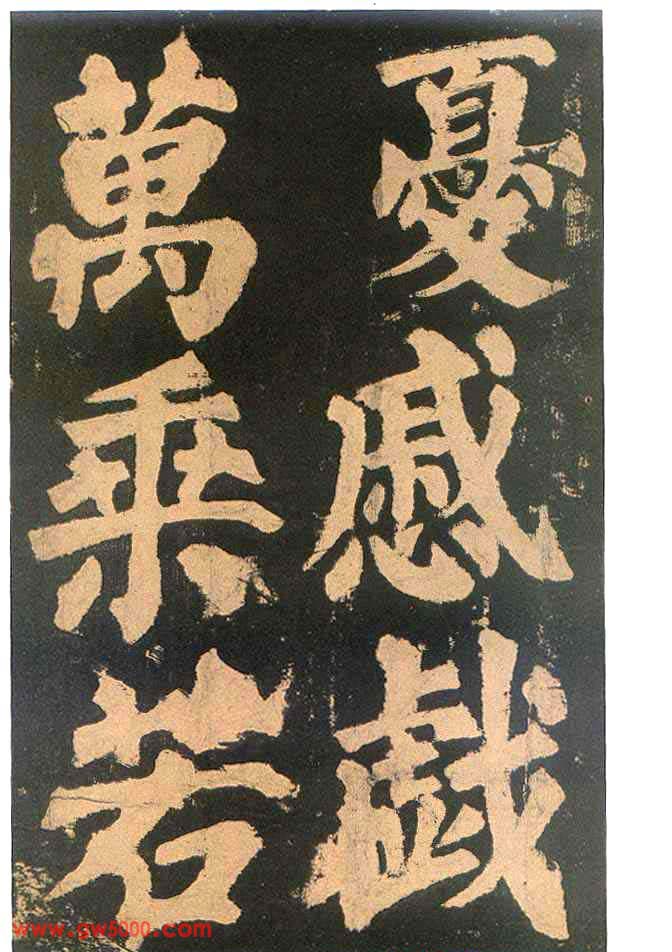 憂慼戱
萬乗若
www.gw5000.com